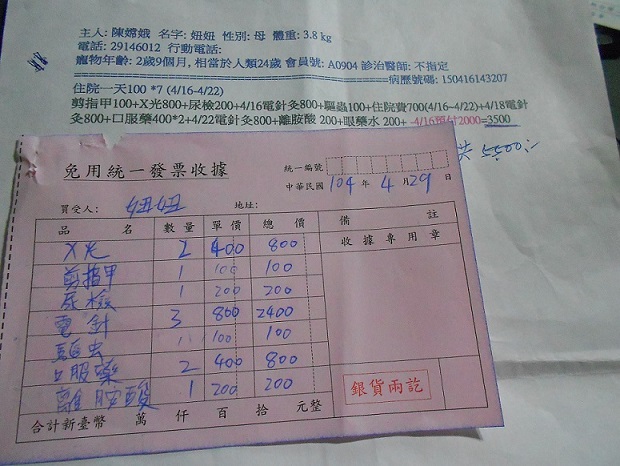 主人: 陳嫦娥 名字: 妞妞 性別: 母 體重: 3.8 kg
電話: 29146012 行動電話:
寵物年齡: 2歲9個月, 相當於人類24歲 會員號: A0904 診治醫師: 不指定
病歷號碼: 150416143207
住院一天100 *7 (4/16-4/22)
剪指甲100+X光800+尿檢200+4/16電針灸800+驅蟲100+住院費700(4/16~4/22)+4/18電針
灸800+口服藥400*2+4/22電針灸800+離胺酸 200+眼藥水 200+ -4/16預付2000=3500
共 5500:-
免用統一發票收據
統一編號
中華民國 104 年 4 月 29 日
買受人: 妞妞 地址:
品名 數量 單價 總價 備註
收據專用章
X光 2 400 800
剪指甲 1 100 100
尿檢 1 200 200
電針 3 800 2400
虫 1 100 100
口服藥 2 400 800
離胺 1 200 200
銀貨兩訖
合計新臺幣 萬 仟 百 拾 元整